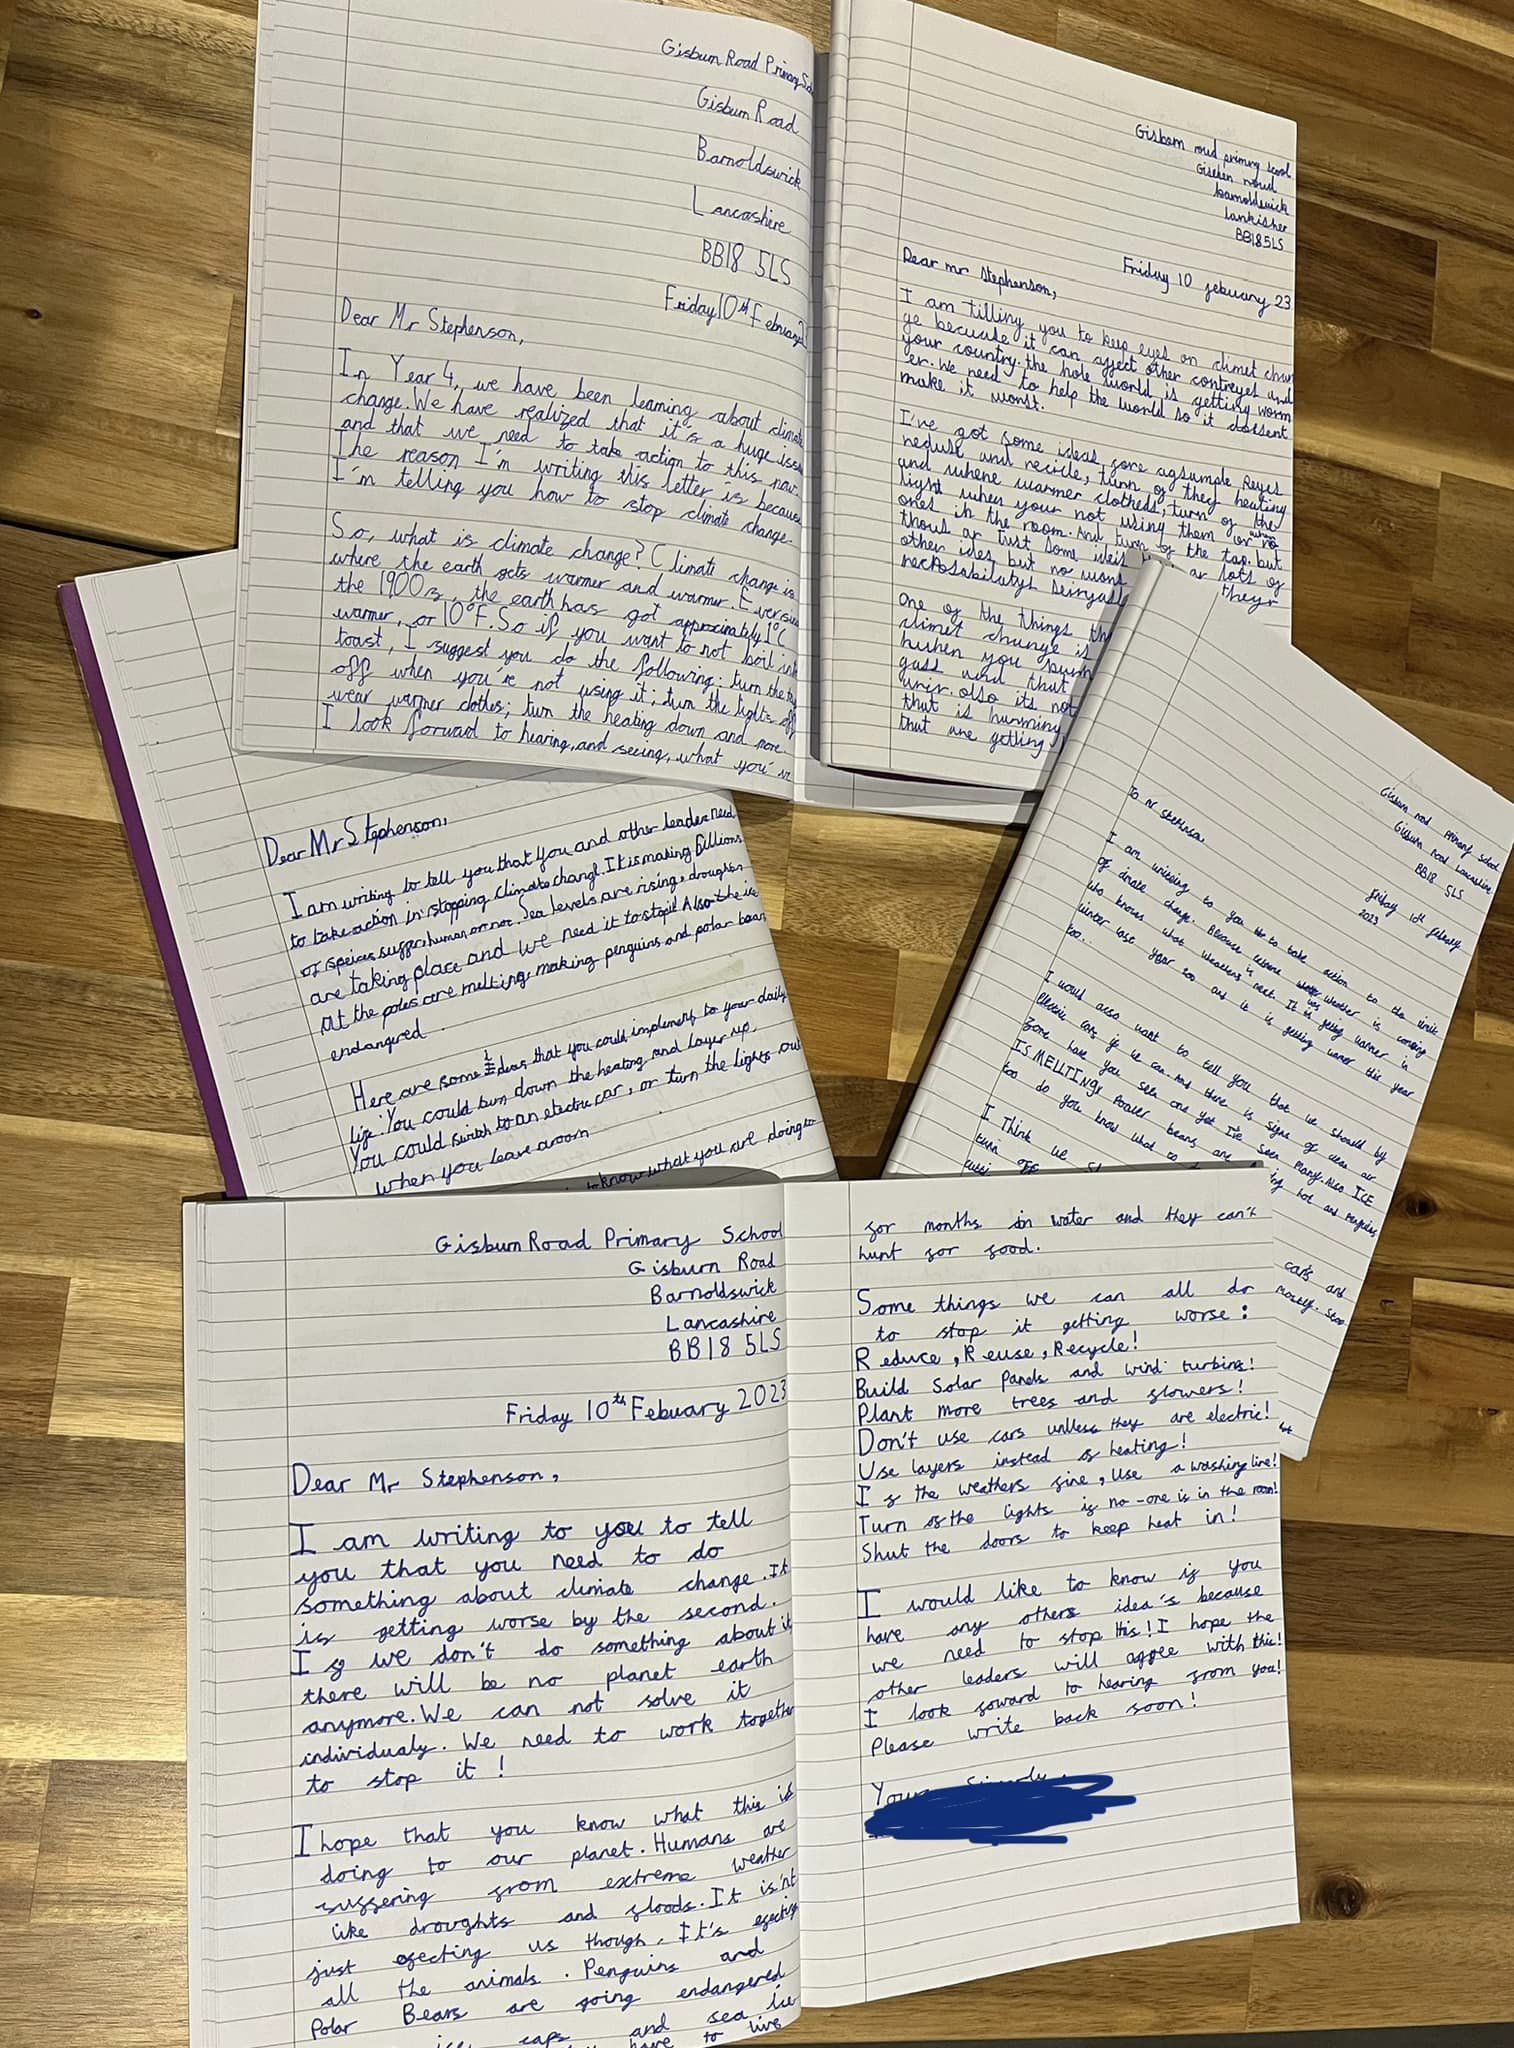 Gisburn Road Primary Sch
Gisburn Road
Barnoldswick
Lancashire
BB18 5LS
Friday 10th February
Dear Mr Stephenson,
In Year 4, we have been learning about climate
change. We have realized that it's a huge issu
and that we need to take action to this now.
The reason I'm writing this letter is because
I'm telling you how to stop climate change.
So, what is climate change? Climate change is
where the earth gets warmer and warmer. Ever since
the 1900s, the earth has got approximately 1°C
warmer, or 10°F. So if you want to not boil into
toast, I suggest you do the following: turn the tap
off when you're not using it; turn the lights off
wear warmer clothes; turn the heating down and more.
I look forward to hearing, and seeing, what you'v
Gisbarn roud primary scool
Gisburn roud
barnoldswick
lankisher
BB185LS
Friday 10 febuuary 23
Dear mr Stephenson,
I am tilling you to keep eyes on climet chan
ge becuase it can affect other contreyes and
your country. the hole world is getting worm
er. We need to help the world so it dossent
make it worst.
I've got some ideas fore agsumple Reyes
reduse and recicle, turn of they heating
and where warmer clotheds, turn of the
light when your not using them or when no
ones in the room. And turn of the tap. but
thous ar just some ideis ar lots of
other ides but no mons theyr
one of the things th
climet change is
huhen you burn
gass and that
unir. olso its not
that is hurming
that are getting
Dear Mr Stephenson,
I am writing to tell you that you and other leaders need
to take action in stopping climate change. It is making billions
of speices suffer, human or not. Sea levels are rising, droughts
are taking place and we need it to stop!! Also the ice
at the poles are melting, making penguins and polar bears
endangered.
Here are some ideas that you could implement to your daily
life: You could turn down the heating and layer up,
You could switch to an electric car, or turn the lights out
when you leave a room
to know what you are doing to
Gisburn road primary school
Gisburn road Lancashire
BB18 5LS
Friday 10th febuary
2023
To Mr Stephenson
I am writing to you to take action to the
of climate change. Because weather is coming
who knows what weathers next. It is getting warmer in
winter last year and it is getting warmer this year
too...
I would also want to tell you that we should by
Electric cars if we can. And there is signs of clean air
Zone have you seen one yet I've seen many. Also ICE
IS MELTING! Poler bears are hot and penguins
too do you know what to
I Think we
turn off cars and
mostly. Stop
Gisburn Road Primary School
Gisburn Road
Barnoldswick
Lancashire
BB18 5LS
Friday 10th Febuary 2023
Dear Mr Stephenson,
I am writing to you to tell
you that you need to do
something about climate change. It
is getting worse by the second.
If we don't do something about it
there will be no planet earth
anymore. We can not solve it
individualy. We need to work together
to stop it!
I hope that you know what this is
doing to our planet. Humans are
suffering from extreme weather
like droughts and floods. It is'nt
just effecting us though, It's effecting
all the animals. Penguins and
Polar Bears are going endangered
ice caps and sea ice
have to live
for months in water and they can't
hunt for food.
Some things we can all do
to stop it getting worse:
Reduce, Reuse, Recycle!
Build Solar Panels and wind turbins!
Plant more trees and flowers!
Don't use cars unless they are electric!
Use layers instead of heating!
If the weathers fine, use a washing line!
Turn of the lights if no-one is in the room!
Shut the doors to keep heat in!
I would like to know if you
have any others idea's because
we need to stop this! I hope the
other leaders will agree with this!
I look foward to hearing from you!
Please write back soon!